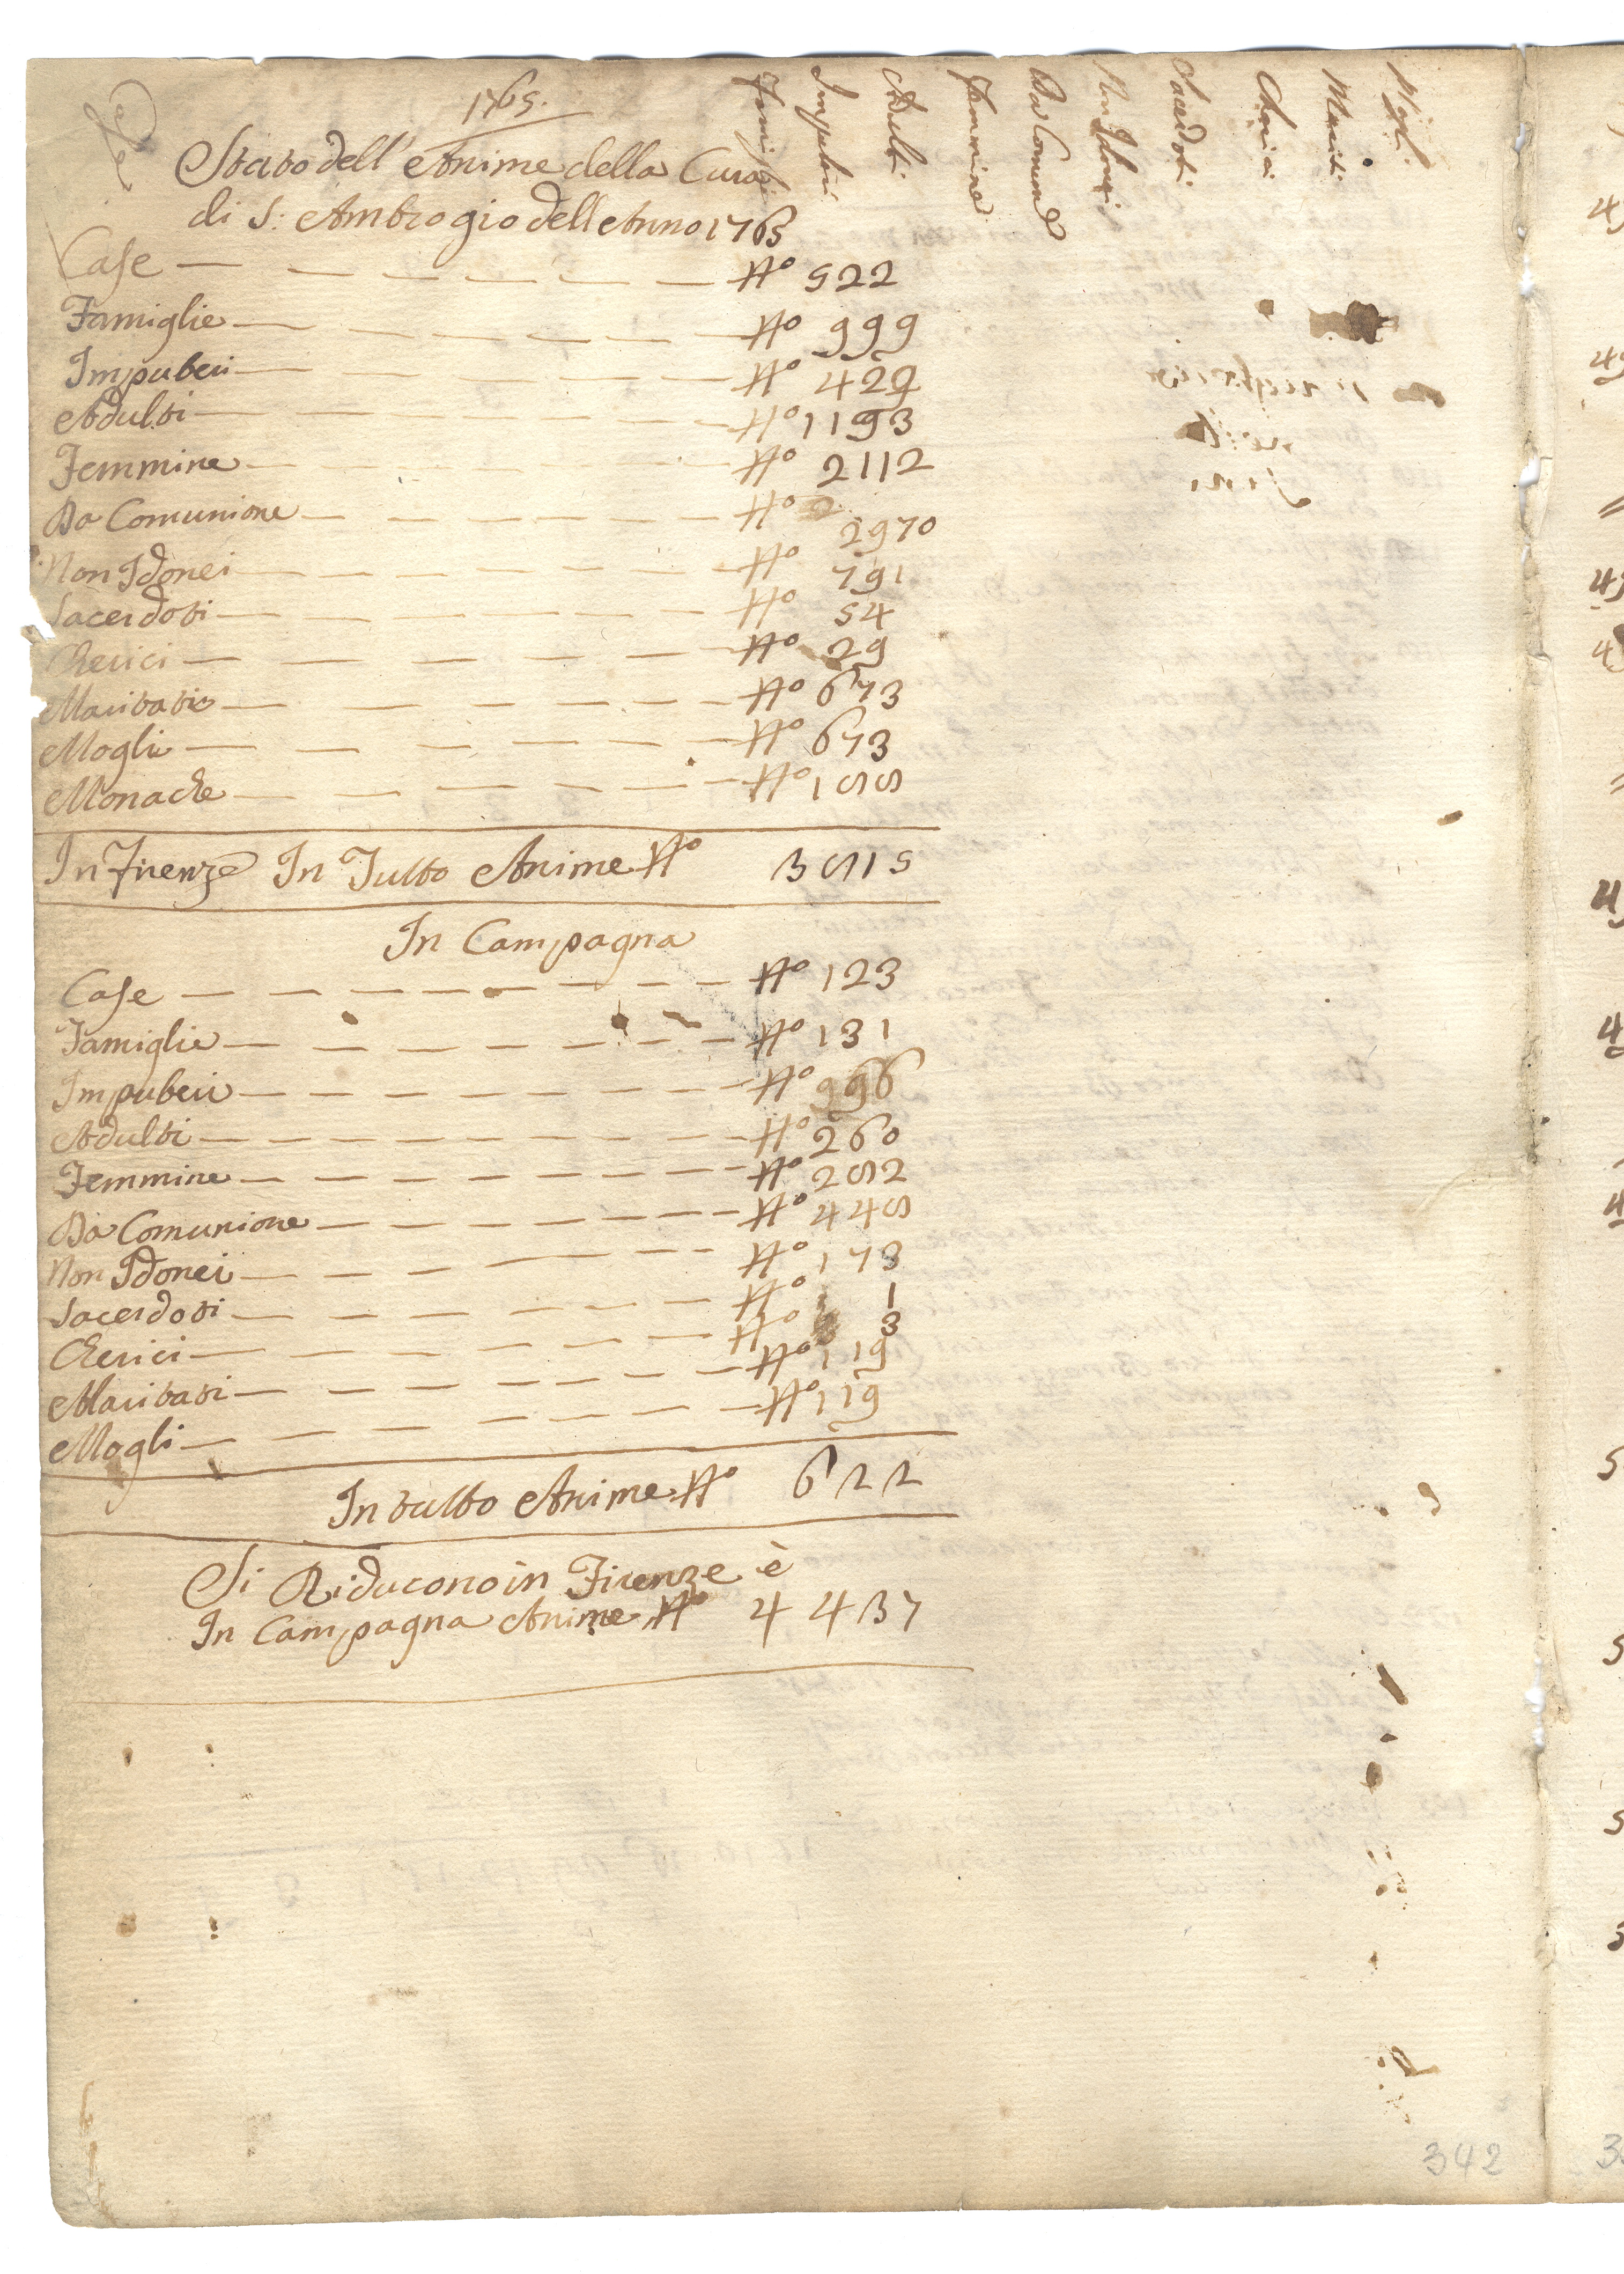 1765.
Stato dell'Anime della Cura
di S: Ambrogio dell Anno 1765
Case — N° 522
Famiglie — N° 999
Impuberi — N°
Adulti — N° 1193
Femmine — N° 2112
Da Comunione — N° 2970
Non Idonei — N° 791
Sacerdoti — N° 54
Cherici — N° 29
Maritati — N° 673
Mogli — N° 673
Monache — N° 188
In Firenze In Tutto Anime N° 3815
In Campagna
Case — N° 123
Famiglie — N° 131
Impuberi — N°
Adulti — N° 260
Femmine — N° 282
Da Comunione — N° 448
Non Idonei — N° 173
Sacerdoti — N° 1
Cherici — N° 3
Maritati — N° 119
Mogli — N° 119
In tutto Anime N° 622
Si Riducono in Firenze è
In Campagna Anime N° 4437
Famigli
Impuberi
Adulti
Femmine
Da Comune
Non Idonei
Sacerdoti
Cherici
Mariti
Mogli
342